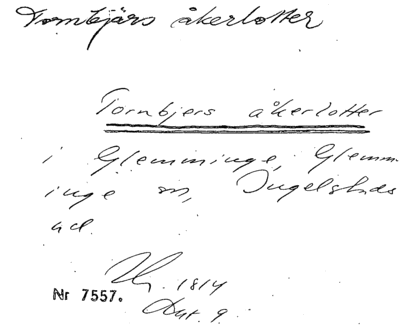 Tornbjärs åkerlotter
Tornbjers åkerlotter
i Glemminge, Glemm-
inge sn, Ingelstads
hd.
1814
Nr 7557.
Akt. 9.